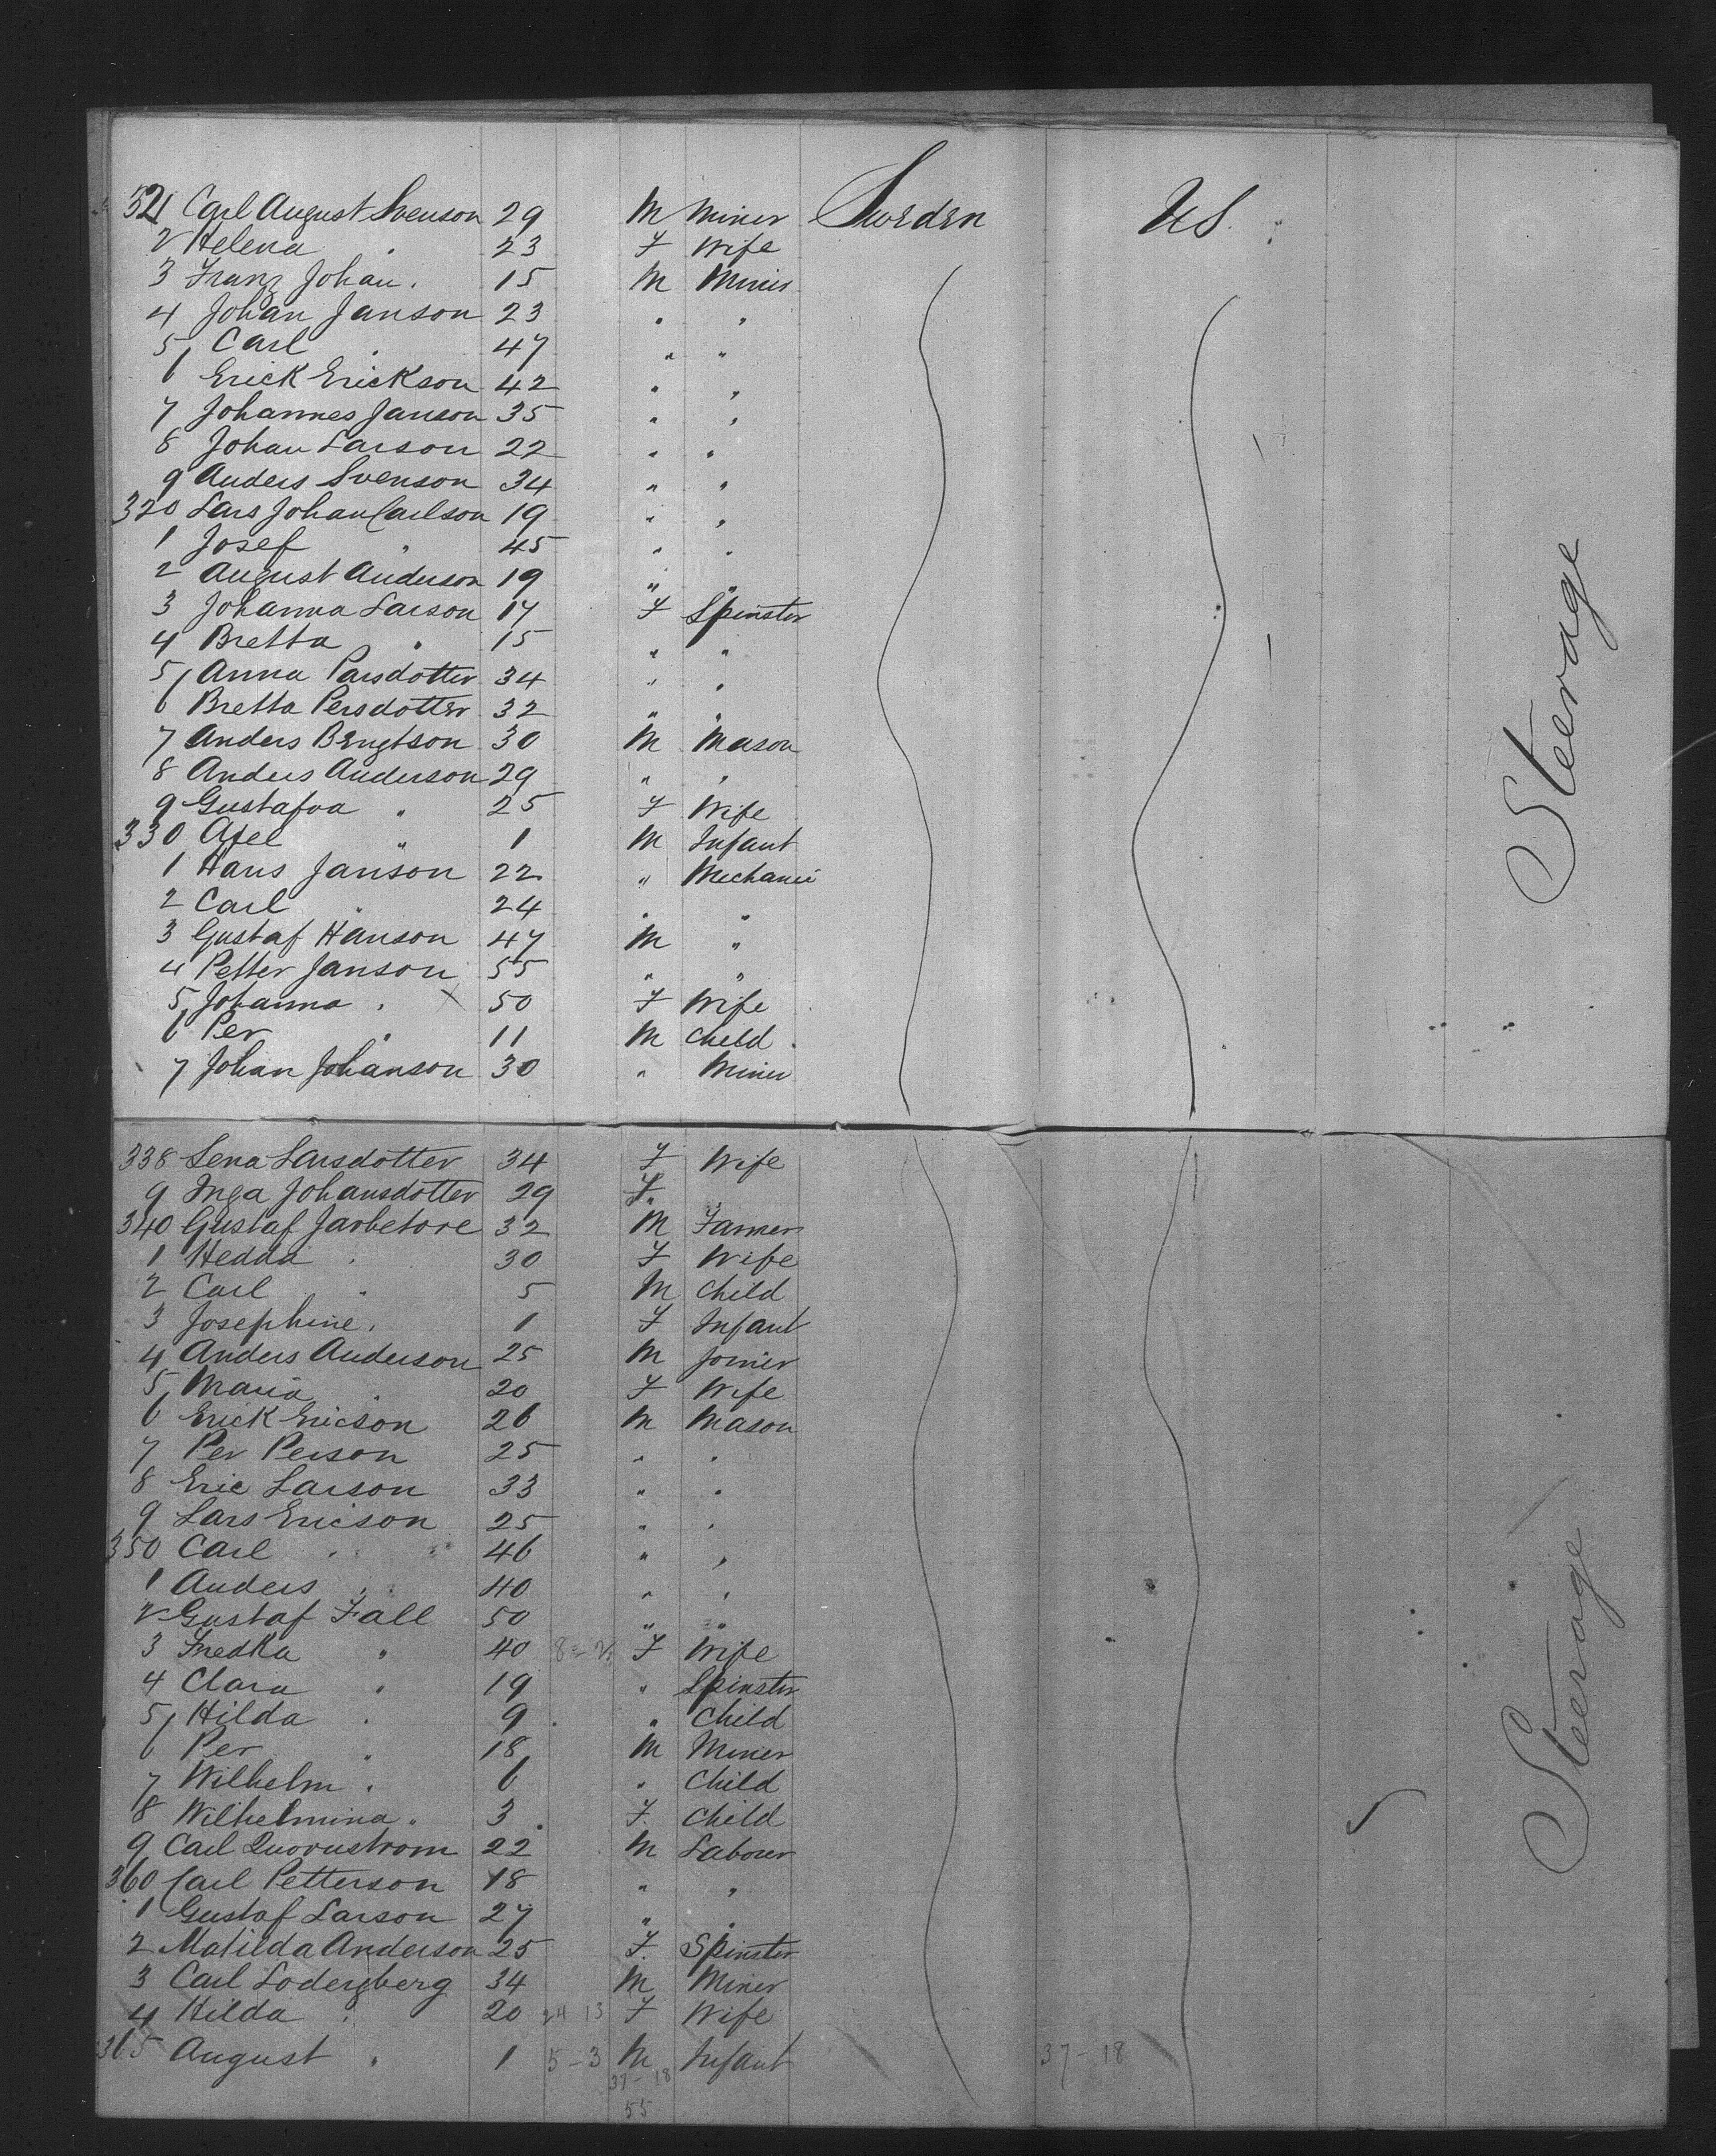 521 Carl August Svenson 29 M Miner Sweden US.
2 Helena " 23 F Wife
3 Franz Johan " 15 M Miner
4 Johan Janson 23 " "
5 Carl " 47 " "
6 Erick Erickson 42 " "
7 Johannes Janson 35 " "
8 Johan Larson 22 " "
9 Anders Svenson 34 " "
320 Lars Johan Carlson 19 " "
1 Josef " 45 " "
2 August Anderson 19 " "
3 Johanna Larson 17 F Spinster
4 Bretta " 15 " "
5 Anna Parsdotter 34 " "
6 Bretta Persdotter 32 " "
7 Anders Bengtson 30 M Mason
8 Anders Anderson 29 " "
9 Gustafva " 25 F Wife
330 Axel " 1 M Infant
1 Hans Janson 22 " Mechanic
2 Carl " 24 " "
3 Gustaf Hanson 47 M "
4 Petter Janson 55 " "
5 Johanna " X 50 F Wife
6 Per " 11 M Child
7 Johan Johanson 30 " Miner
Steerage
338 Lena Larsdotter 34 F Wife
9 Inga Johansdotter 29 F "
340 Gustaf Jarbetore 32 M Farmer
1 Hedda " 30 F Wife
2 Carl " 5 M Child
3 Josephine " 1 F Infant
4 Anders Anderson 25 M Joiner
5 Maria " 20 F Wife
6 Erick Ericson 26 M Mason
7 Per Person 25 " "
8 Eric Larson 33 " "
9 Lars Ericson 25 " "
350 Carl " 46 " "
1 Anders " 40 " "
2 Gustaf Fall 50 " "
3 Fredka " 40 F Wife
4 Clara " 19 " Spinster
5 Hilda " 9 " Child
6 Per " 18 M Miner
7 Wilhelm " 6 " Child
8 Wilhelmina " 3 F. Child
9 Carl Quornstrom 22 M Labourer
360 Carl Petterson 18 " "
1 Gustaf Larson 27 " "
2 Matilda Anderson 25 F. Spinster
3 Carl Sodergberg 34 M Miner
4 Hilda " 20 24 13 F Wife
365 August " 1 5-3 M Infant 37-18
37-18
55
Steerage